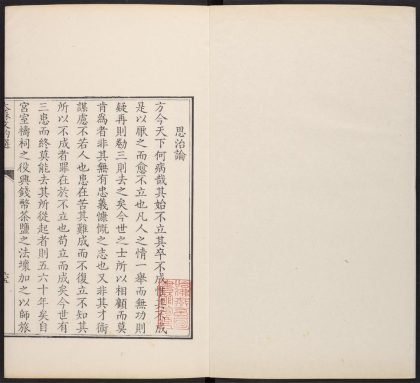 思治論
方今天下何病哉其始不立其卒不成惟其不成
是以厭之而愈不立也凡人之情一舉而無功則
疑再則勌三則去之矣今世之士所以相顧而莫
肯為者非其無有忠義慷慨之志也又非其才術
謀慮不若人也患在苦其難成而不復立不知其
所以不成者罪在於不立也苟立而成矣今世有
三患而終莫能去其所從起者則五六十年矣自
宮室禱祠之役興錢幣茶鹽之法壞加之以師旅